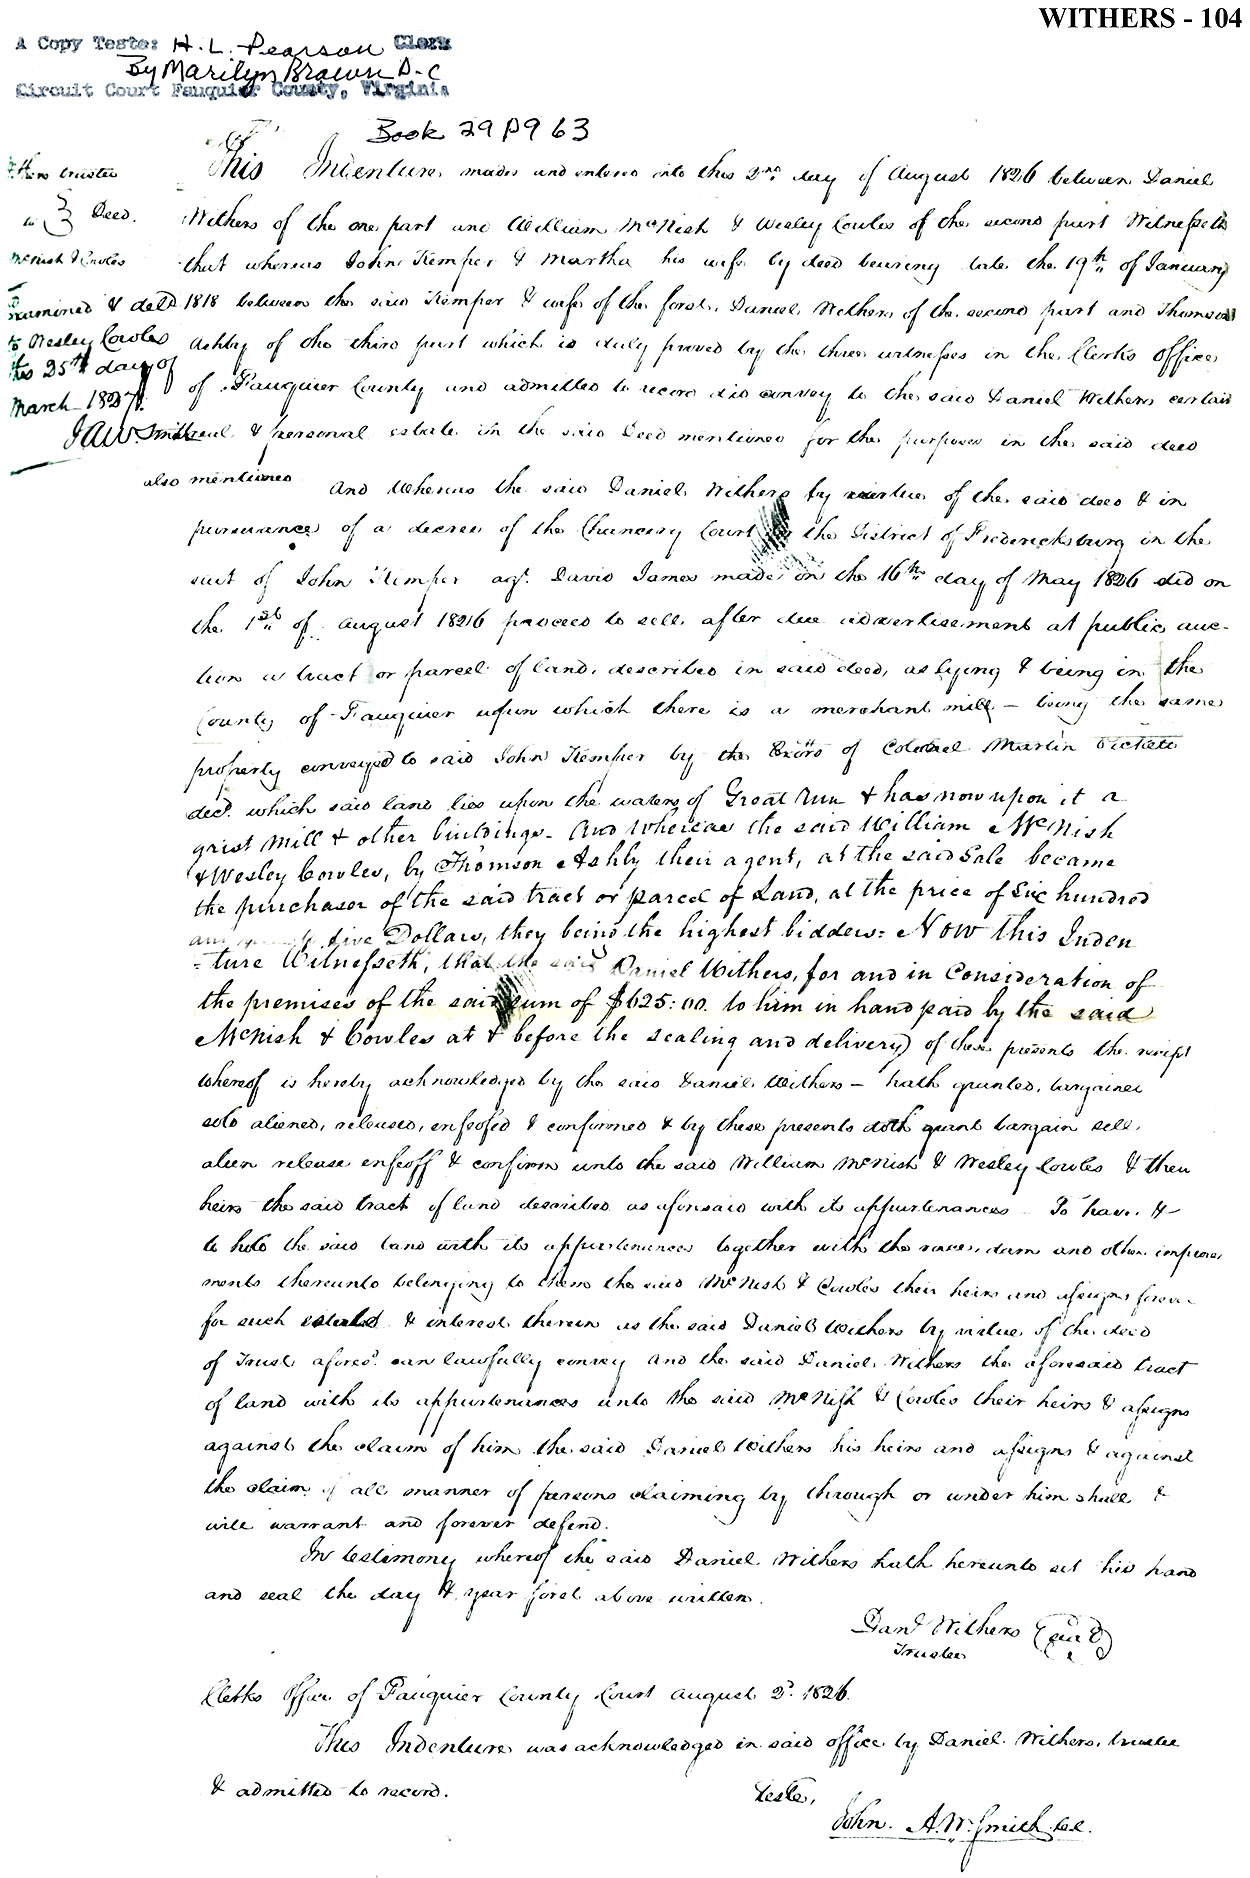 WITHERS - 104
A Copy Teste: H. L. Pearson Clerk
By Marilyn Brown D-C
Circuit Court Fauquier County, Virginia
Book 29 pg 63
Withers trustee
to } Deed.
McNish & Cowles
Examined & deld
to Wesley Cowles
this 25th day of
March 1827.
J A W. Smith
This Indenture made and entered into this 2nd day of August 1826 between Daniel
Withers of the one part and William McNish & Wesley Cowles of the second part Witnesseth
that whereas John Kemper & Martha his wife by deed bearing date the 19th of January
1818 between the said Kemper & wife of the first, Daniel Withers of the second part and Thomson
Ashby of the third part which is duly proved by the three witnesses in the Clerks office
of Fauquier County and admitted to record did convey to the said Daniel Withers certain
real & personal estate in the said Deed mentioned for the purposes in the said deed
also mentioned And Whereas the said Daniel Withers by virtue of the said deed & in
pursuance of a decree of the Chancery Court the District of Fredericksburg in the
suit of John Kemper agt. David James made on the 16th day of May 1826 did on
the 1st of August 1826 proceed to sell after due advertisement at public auc-
tion a tract or parcel of land, described in said deed, as lying & being in the
County of Fauquier upon which there is a merchant mill - being the same
property conveyed to said John Kemper by the Exors of Colonel Martin Pickett
decd. which said land lies upon the waters of Great Run & has now upon it a
grist Mill & other buildings - And Whereas the said William McNish
& Wesley Cowles, by Thomson Ashby their agent, at the said Sale became
the purchaser of the said tract or parcel of Land, at the price of Six hundred
and five Dollars, they being the highest bidders: Now this Inden
-ture Witnesseth, that the said Daniel Withers, for and in Consideration of
the premises of the said sum of $625:00. to him in hand paid by the said
McNish & Cowles at & before the sealing and delivery of these presents the receipt
whereof is hereby acknowledged by the said Daniel Withers - hath granted, bargained
sold aliened, released, enfeofed & confirmed & by these presents doth grant bargain sell,
alien release enfeoff & confirm unto the said William McNish & Wesley Cowles & their
heirs the said tract of land described as aforesaid with its appurtenances To have &
to hold the said land with its appurtenances together with the races, dam and other improve
ments thereunto belonging to them the said McNish & Cowles their heirs and assigns forever
for such estate & interest therein as the said Daniel Withers by virtue of the deed
of Trust aforesd. can lawfully convey and the said Daniel Withers the aforesaid tract
of land with its appurtenances unto the said McNish & Cowles their heirs & assigns
against the claim of him the said Daniel Withers his heirs and assigns & against
the claim of all manner of persons claiming by through or under him shall &
will warrant and forever defend.
In testimony whereof the said Daniel Withers hath hereunto set his hand
and seal the day & year first above written.
Danl Withers (seal)
Trustee
Clerks Office of Fauquier County Court August 2d. 1826.
This Indenture was acknowledged in said office by Daniel Withers, trustee
& admitted to record.
Teste,
John. A. W. Smith